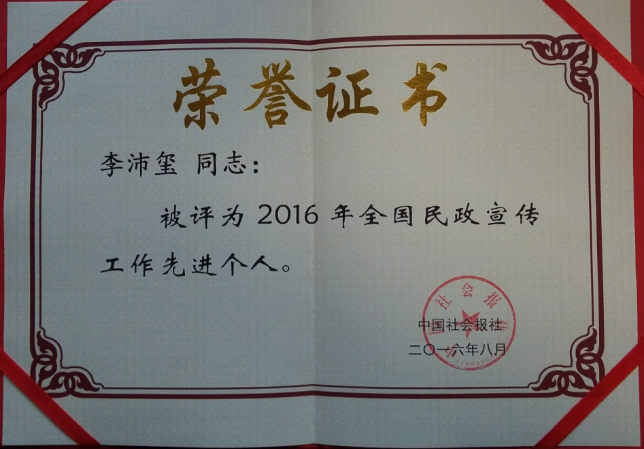 荣誉证书
李沛玺 同志：
被评为 2016 年全国民政宣传
工作先进个人。
中国社会报社
二〇一六年八月